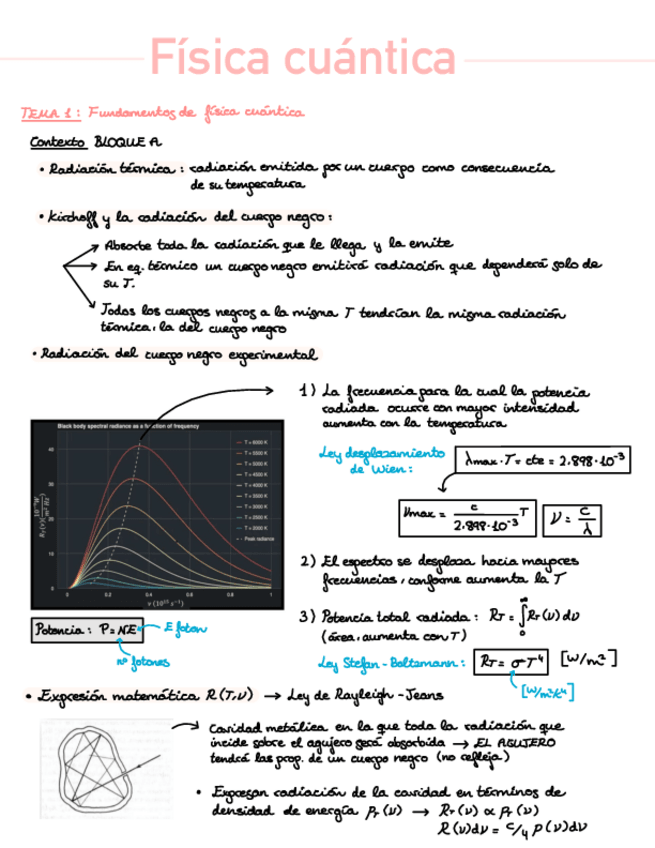 Física cuántica
TEMA 1: Fundamentos de física cuántica
Contexto BLOQUE A
• Radiación térmica: radiación emitida por un cuerpo como consecuencia
de su temperatura
• Kirchoff y la radiación del cuerpo negro:
Absorbe toda la radiación que le llega y la emite
En eq. térmico un cuerpo negro emitirá radiación que dependerá solo de
su T.
Todos los cuerpos negros a la misma T tendrían la misma radiación
térmica, la del cuerpo negro
• Radiación del cuerpo negro experimental
1) La frecuencia para la cual la potencia
radiada ocurre con mayor intensidad
aumenta con la temperatura
Black body spectral radiance as a function of frequency
T = 6000 K
T = 5500 K
T = 5000 K
T = 4500 K
T = 4000 K
T = 3500 K
T = 3000 K
T = 2500 K
T = 2000 K
Peak radiance
40
30
20
10
0
0 0.2 0.4 0.6 0.8 1
ν (10¹⁵ s⁻¹)
Ley desplazamiento
de Wien:
λmax · T = cte = 2.898·10⁻³
νmax = c / 2.898·10⁻³ T
ν = c/λ
2) El espectro se desplaza hacia mayores
frecuencias, conforme aumenta la T
3) Potencia total radiada: R_T = ∫₀^∞ R_T(ν)dν
(área, aumenta con T)
Potencia: P = NE
E foton
nº fotones
Ley Stefan-Boltzmann: R_T = σT⁴ [W/m²]
[W/m²k⁴]
• Expresión matemática R(T,ν) → Ley de Rayleigh-Jeans
Cavidad metálica en la que toda la radiación que
incide sobre el agujero será absorbida → EL AGUJERO
tendrá las prop. de un cuerpo negro (no refleja)
• Expresan radiación de la cavidad en términos de
densidad de energía ρ_T(ν) → R_T(ν) ∝ ρ_T(ν)
R(ν)dν = c/4 ρ(ν)dν